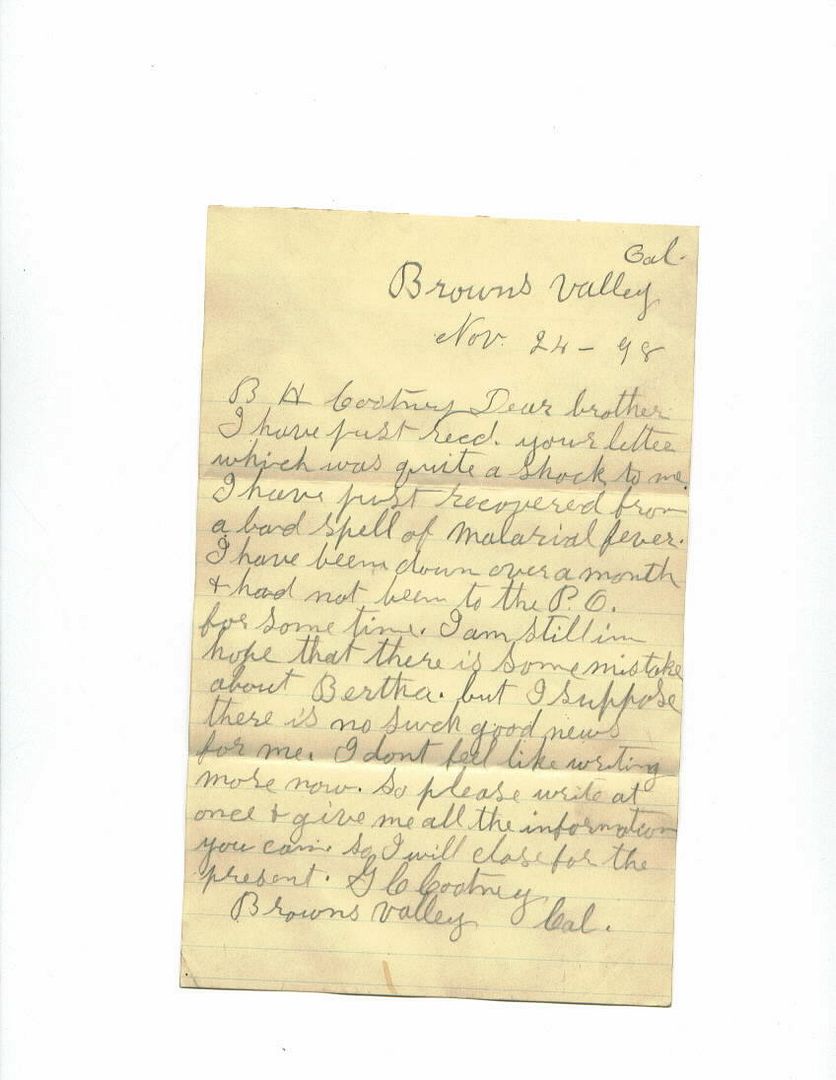 Cal.
Browns Valley
Nov. 24 - 98
B H Cootney Dear brother
I have just recd. your letter
which was quite a shock to me.
I have just recovered from
a bad spell of malarial fever.
I have been down over a month
& had not been to the P.O.
for some time. I am still in
hope that there is some mistake
about Bertha. but I suppose
there is no such good news
for me. I dont feel like writing
more now. So please write at
once & give me all the information
you can. so I will close for the
present. G C Cootney
Browns Valley Cal.